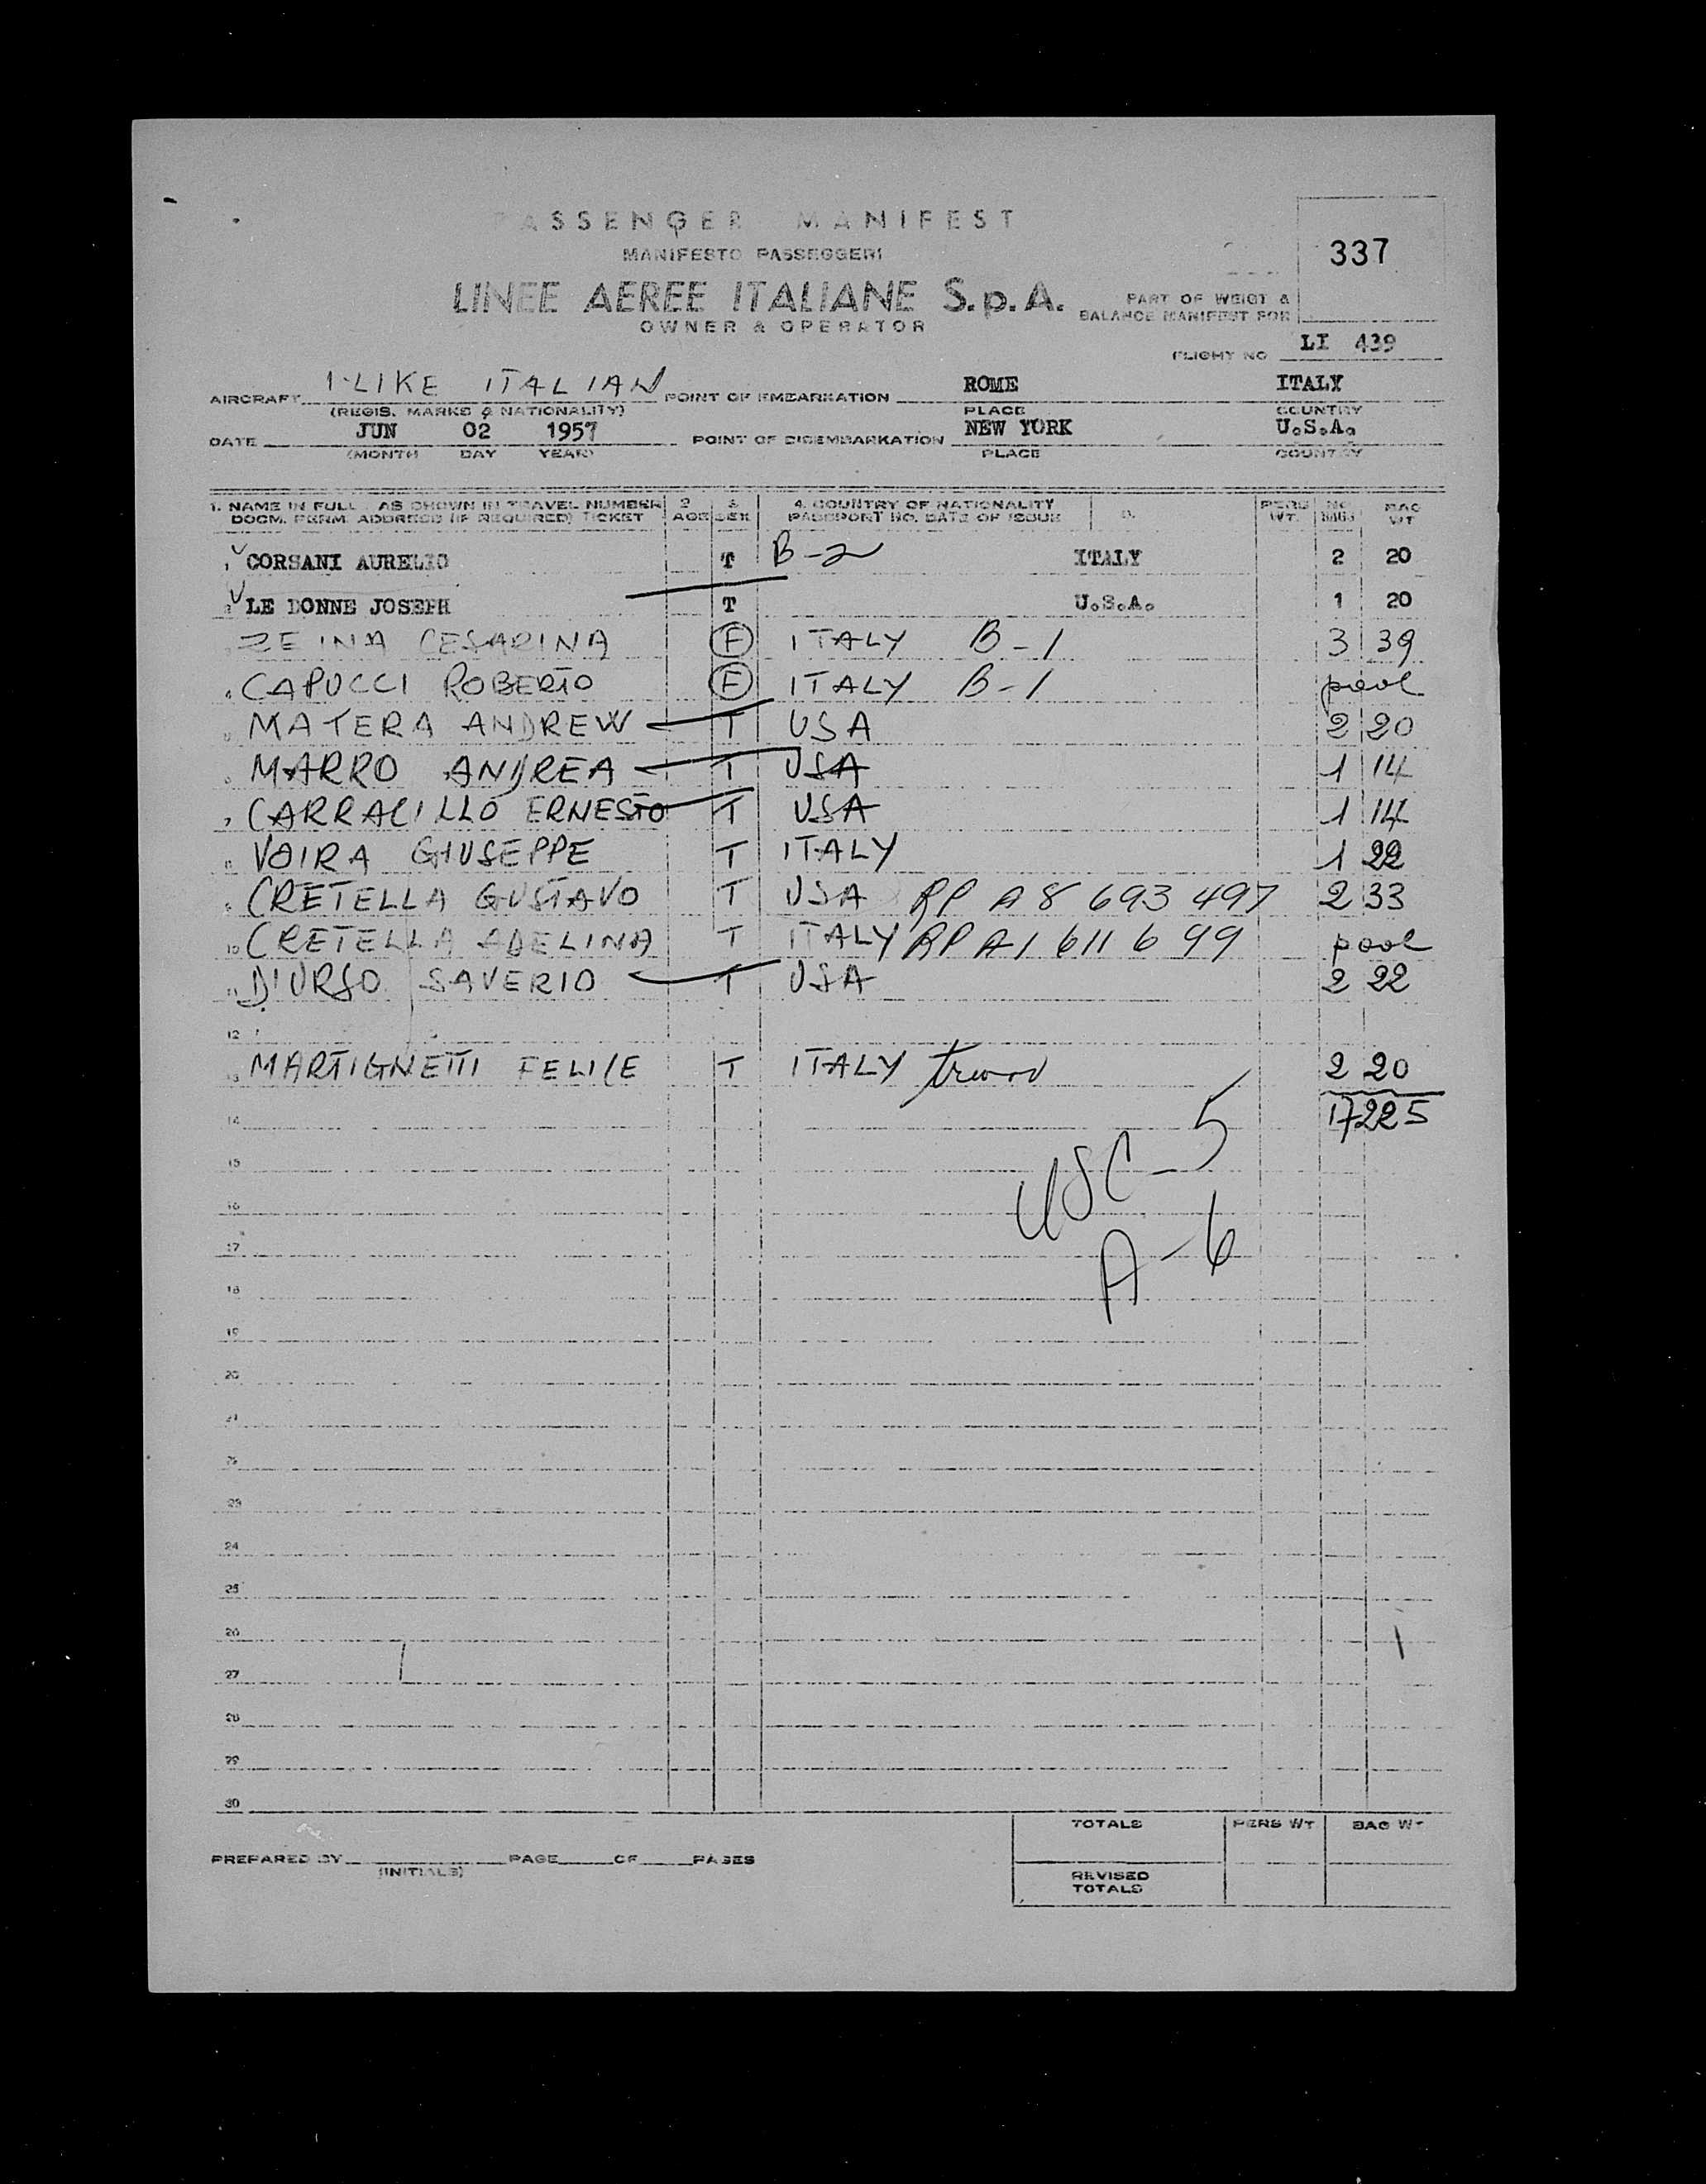 PASSENGER MANIFEST
MANIFESTO PASSEGGERI
337
LINEE AEREE ITALIANE S.p.A.
OWNER & OPERATOR
PART OF WEIGT &
BALANCE MANIFEST FOR
FLIGHT NO LI 439
AIRCRAFT I-LIKE ITALIAN POINT OF EMBARKATION ROME ITALY
(REGIS. MARKS & NATIONALITY) PLACE COUNTRY
DATE JUN 02 1957 POINT OF DISEMBARKATION NEW YORK U.S.A.
(MONTH DAY YEAR) PLACE COUNTRY
1. NAME IN FULL AS SHOWN IN TRAVEL NUMBER 2 3 4. COUNTRY OF NATIONALITY PERS NO BAG
DOCM. PERM. ADDRESS (IF REQUIRED) TICKET AGE SEX PASSPORT NO. DATE OF ISSUE WT. BAGS WT
1 CORSANI AURELIO T B-2 ITALY 2 20
2 LE DONNE JOSEPH T U.S.A. 1 20
CESARINA F ITALY B-1 3 39
4 CAPUCCI ROBERTO F ITALY B-1 pool
MATERA ANDREW T USA 2 20
6 MARRO ANDREA T USA 1 14
7 CARRACILLO ERNESTO T USA 1 14
8 VOIRA GIUSEPPE T ITALY 1 22
9 CRETELLA GUSTAVO T USA RP A8 693 497 2 33
10 CRETELLA ADELINA T ITALY RP A1 611 699 pool
11 D'URSO SAVERIO T USA 2 22
12
13 MARTIGNETTI FELICE T ITALY 2 20
17 225
14
USC-5
15
16
A-6
17
18
19
20
21
22
23
24
25
26
27
28
29
30
TOTALS PERS WT BAG WT
PREPARED BY PAGE OF PAGES
(INITIALS)
REVISED
TOTALS